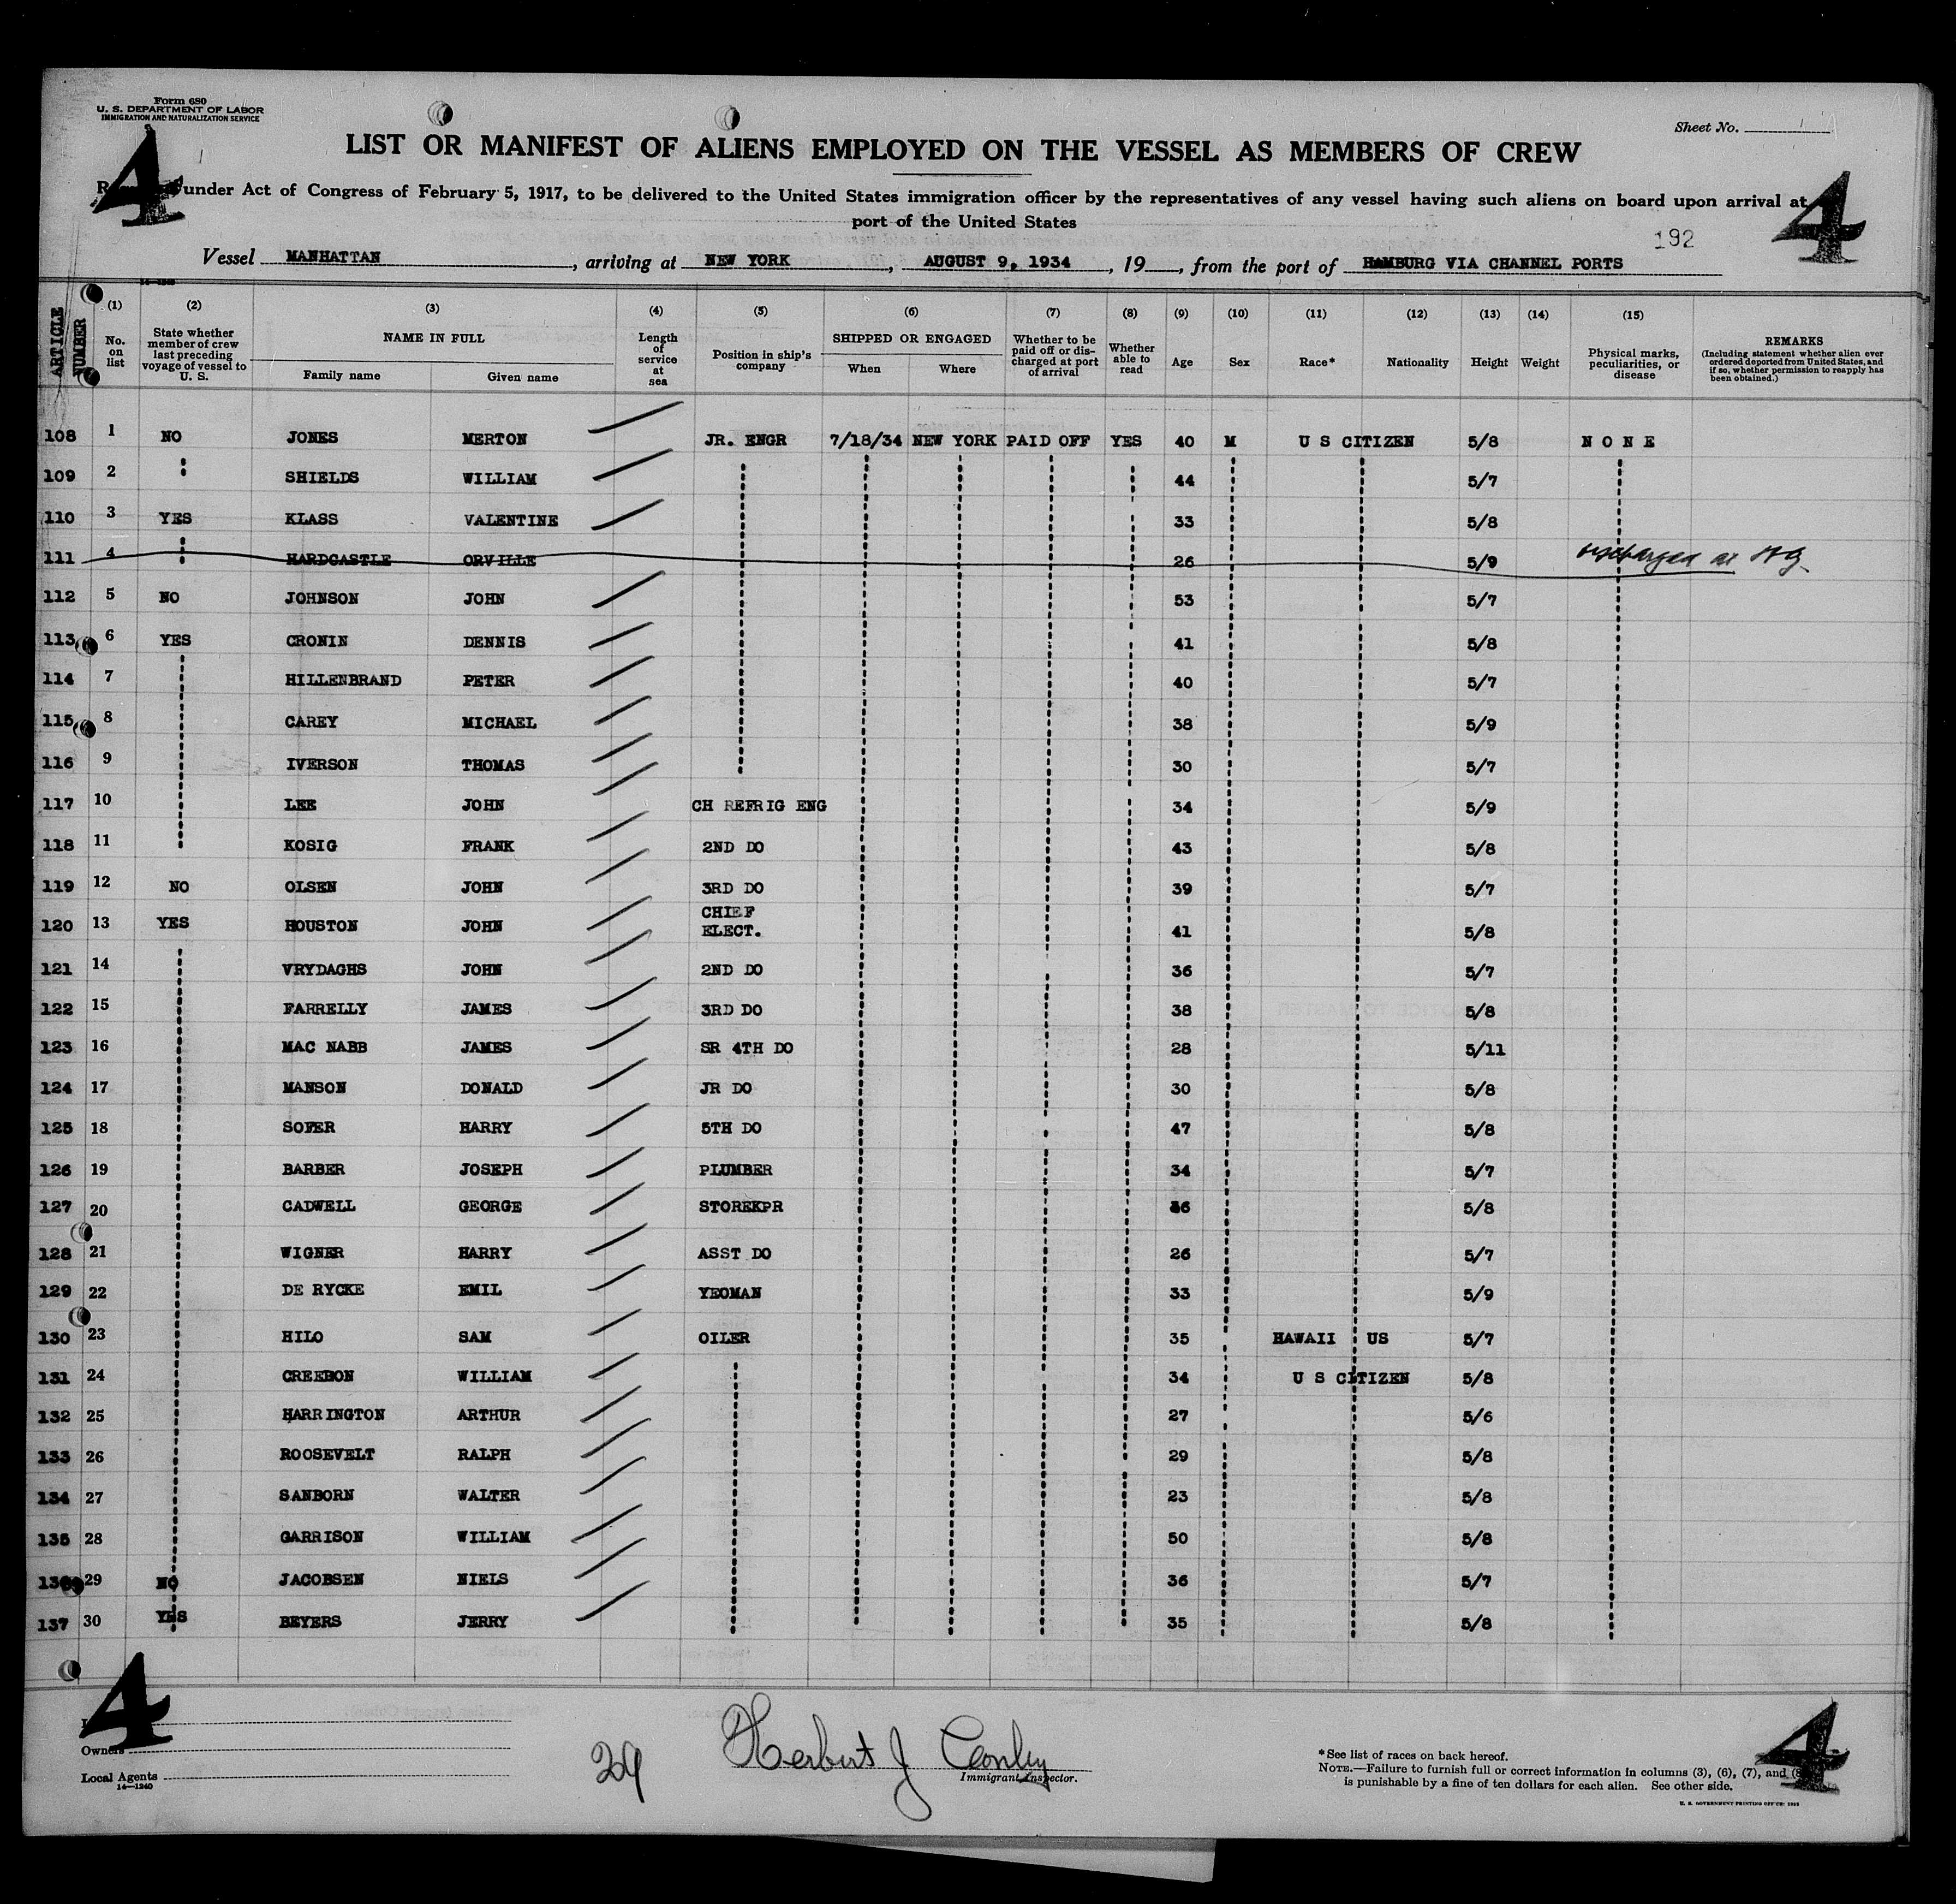 Form 680
U. S. DEPARTMENT OF LABOR
IMMIGRATION AND NATURALIZATION SERVICE
Sheet No.
4
4
LIST OR MANIFEST OF ALIENS EMPLOYED ON THE VESSEL AS MEMBERS OF CREW
under Act of Congress of February 5, 1917, to be delivered to the United States immigration officer by the representatives of any vessel having such aliens on board upon arrival at
port of the United States
192
Vessel MANHATTAN, arriving at NEW YORK, AUGUST 9, 1934, 19, from the port of HAMBURG VIA CHANNEL PORTS
ARTICLE NUMBER (1) (2) (3) (4) (5) (6) (7) (8) (9) (10) (11) (12) (13) (14) (15)
No. on list State whether member of crew last preceding voyage of vessel to U. S. NAME IN FULL Family name Given name Length of service at sea Position in ship's company SHIPPED OR ENGAGED When Where Whether to be paid off or discharged at port of arrival Whether able to read Age Sex Race* Nationality Height Weight Physical marks, peculiarities, or disease REMARKS (Including statement whether alien ever ordered deported from United States, and if so, whether permission to reapply has been obtained.)
108 1 NO JONES MERTON JR. ENGR 7/18/34 NEW YORK PAID OFF YES 40 M U S CITIZEN 5/8 N O N E
109 2 SHIELDS WILLIAM 44 5/7
110 3 YES KLASS VALENTINE 33 5/8
111 4 HARDCASTLE ORVILLE 26 5/9 discharged at
112 5 NO JOHNSON JOHN 53 5/7
113 6 YES CRONIN DENNIS 41 5/8
114 7 HILLENBRAND PETER 40 5/7
115 8 CAREY MICHAEL 38 5/9
116 9 IVERSON THOMAS 30 5/7
117 10 LEE JOHN CH REFRIG ENG 34 5/9
118 11 KOSIG FRANK 2ND DO 43 5/8
119 12 NO OLSEN JOHN 3RD DO 39 5/7
120 13 YES HOUSTON JOHN CHIEF ELECT. 41 5/8
121 14 VRYDAGHS JOHN 2ND DO 36 5/7
122 15 FARRELLY JAMES 3RD DO 38 5/8
123 16 MAC NABB JAMES SR 4TH DO 28 5/11
124 17 MANSON DONALD JR DO 30 5/8
125 18 SOFER HARRY 5TH DO 47 5/8
126 19 BARBER JOSEPH PLUMBER 34 5/7
127 20 CADWELL GEORGE STOREKPR 5/8
128 21 WIGNER HARRY ASST DO 26 5/7
129 22 DE RYCKE EMIL YEOMAN 33 5/9
130 23 HILO SAM OILER 35 HAWAII US 5/7
131 24 CREEBON WILLIAM 34 U S CITIZEN 5/8
132 25 HARRINGTON ARTHUR 27 5/6
133 26 ROOSEVELT RALPH 29 5/8
134 27 SANBORN WALTER 23 5/8
135 28 GARRISON WILLIAM 50 5/8
136 29 NO JACOBSEN NIELS 36 5/7
137 30 YES BEYERS JERRY 35 5/8
4
4
Owners
Local Agents
14—1240
29
Herbert J Conley
Immigrant Inspector.
*See list of races on back hereof.
NOTE.—Failure to furnish full or correct information in columns (3), (6), (7), and (8)
is punishable by a fine of ten dollars for each alien. See other side.
U. S. GOVERNMENT PRINTING OFFICE: